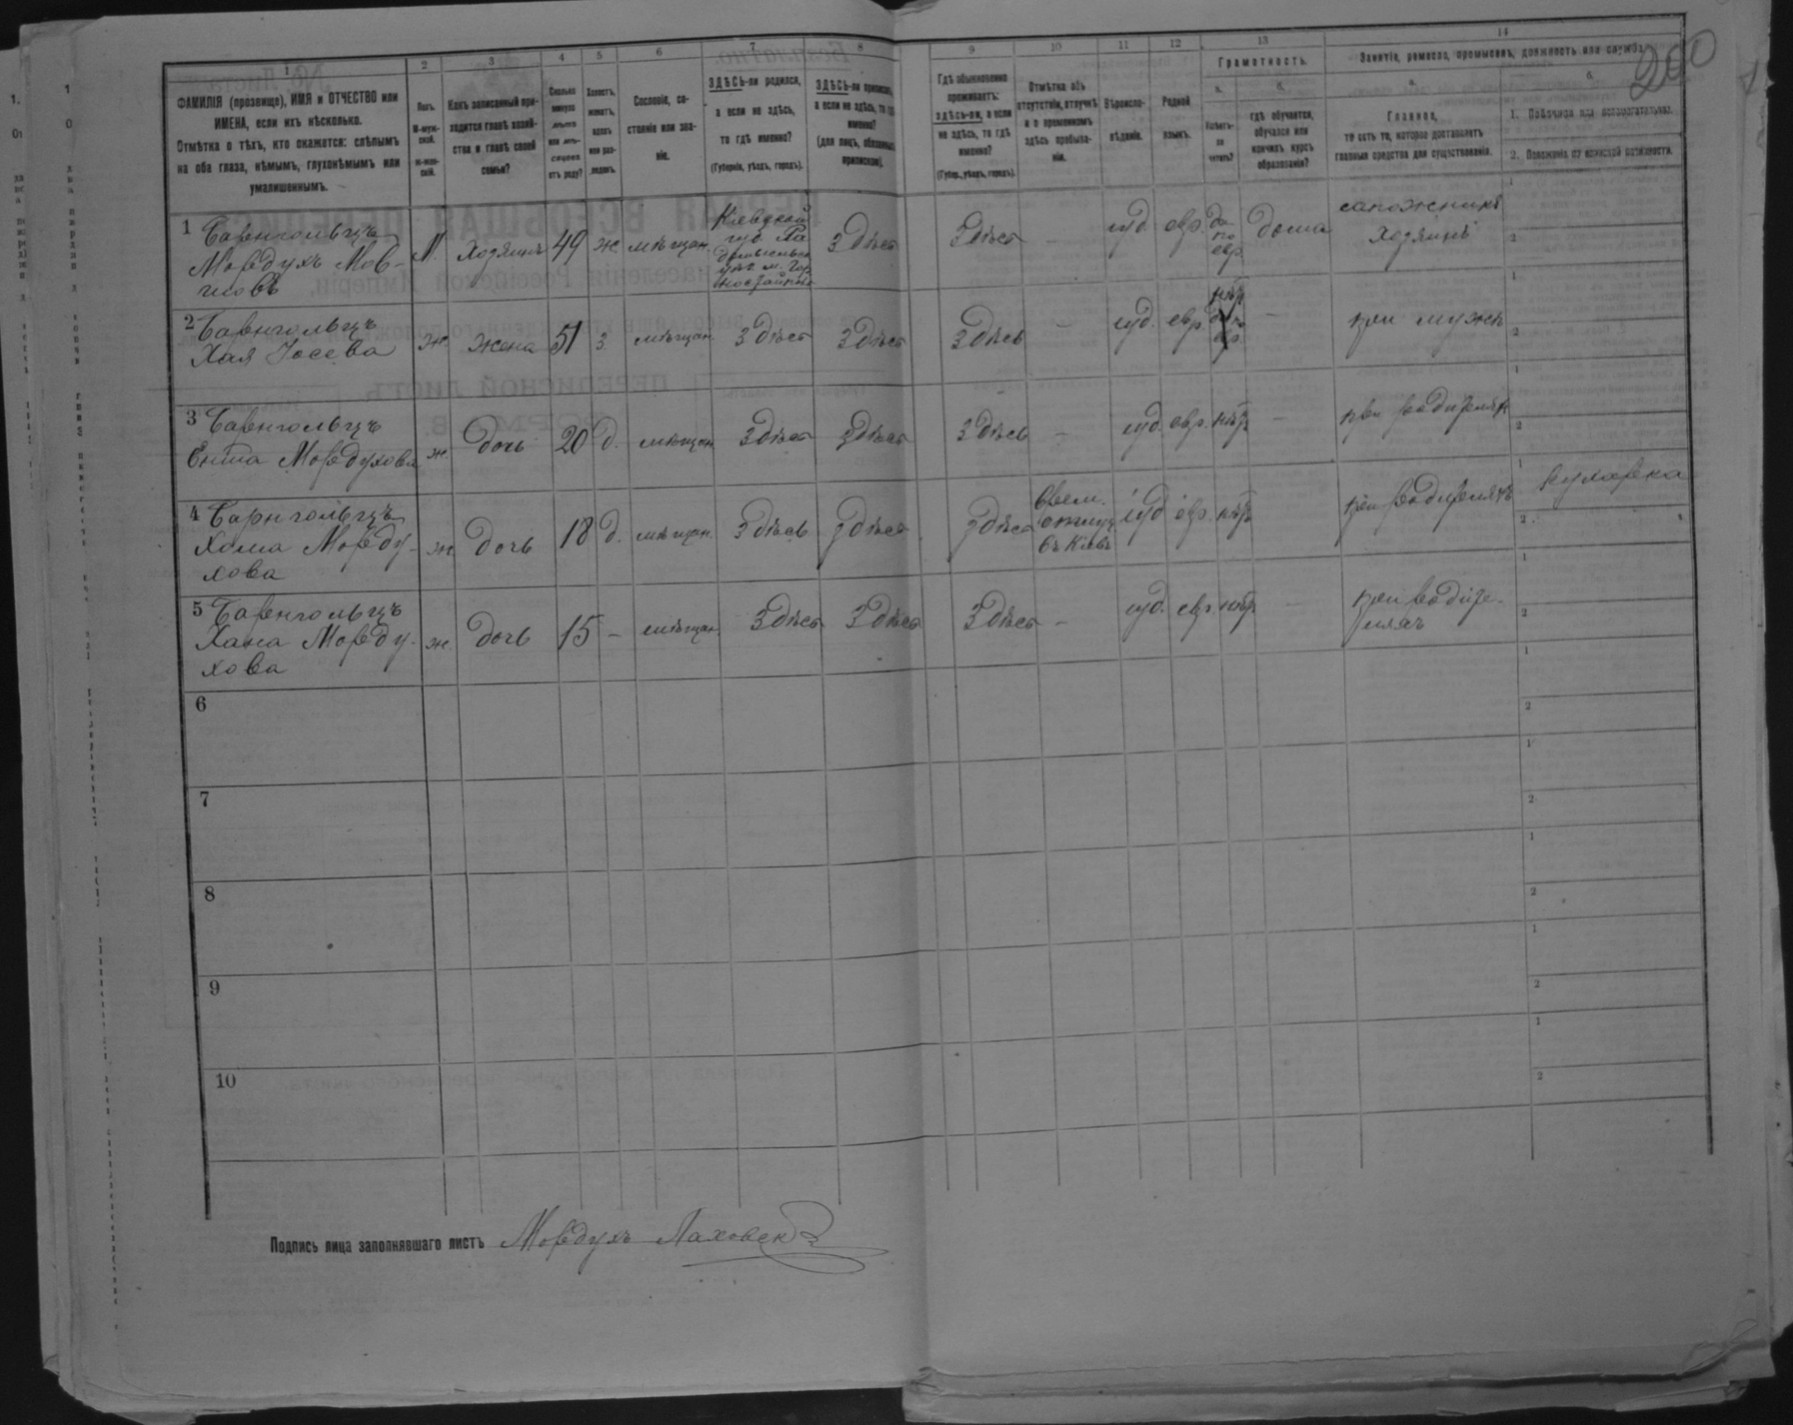 200
1 2 3 4 5 6 7 8 9 10 11 12 13 14
ФАМИЛІЯ (прозвище), ИМЯ и ОТЧЕСТВО или
ИМЕНА, если ихъ нѣсколько.
Отмѣтка о тѣхъ, кто окажется: слѣпымъ
на оба глаза, нѣмымъ, глухонѣмымъ или
умалишеннымъ.
Полъ.
М-муж-
ской.
Ж-жен-
скій.
Какъ записанный при-
ходится главѣ хозяй-
ства и главѣ своей
семьи?
Сколько
минуло
лѣтъ
или мѣ-
сяцевъ
отъ роду?
Холостъ,
женатъ,
вдовъ
или раз-
веденъ.
Сословіе, со-
стояніе или зва-
ніе.
ЗДѢСЬ-ли родился,
а если не здѣсь,
то гдѣ именно?
(Губернія, уѣздъ, городъ).
ЗДѢСЬ-ли приписанъ,
а если не здѣсь, то гдѣ
именно?
(для лицъ, обязанныхъ
припискою).
Гдѣ обыкновенно
проживаетъ:
здѣсь-ли, а если
не здѣсь, то гдѣ
именно?
(Губер., уѣздъ, городъ).
Отмѣтка объ
отсутствіи, отлучкѣ
и о временномъ
здѣсь пребыва-
ніи.
Вѣроиспо-
вѣданіе.
Родной
языкъ.
Грамотность.
а.
Умѣетъ-
ли
читать?
б.
гдѣ обучается,
обучался или
кончилъ курсъ
образованія?
Занятіе, ремесло, промыселъ, должность или служба.
а.
Главное,
то есть то, которое доставляетъ
главныя средства для существованія.
б.
1. Побочное или вспомогательное.
2. Положеніе по воинской повинности.
1 Баренгольцъ
Мордухъ Мов-
шовъ
М. Хозяинъ 49 ж мѣщан.
Кіевской
губ. Ра
домысльск
уѣз. м. Гор
ностайполь
Здѣсь Здѣсь — іуд. евр. да
по
евр
дома
сапожникъ
Хозяинъ
2 Баренгольцъ
Хая Іосева
ж. жена 51 з. мѣщан. Здѣсь Здѣсь Здѣсь — іуд. евр. нѣт —
при мужѣ
3 Баренгольцъ
Ента Мордухова
ж. дочь 20 д. мѣщан Здѣсь Здѣсь Здѣсь — іуд. евр. нѣт —
при родителях
4 Баренгольцъ
Хома Морду-
хова
ж дочь 18 д. мѣщан. Здѣсь Здѣсь Здѣсь
Врем.
отлуч
въ Кіевъ
іуд евр. нѣт
при родителяхъ
кухарка
5 Баренгольцъ
Хана Морду-
хова
ж. дочь 15 — мѣщан. Здѣсь Здѣсь Здѣсь — іуд. евр. нѣт —
при родите-
ляхъ
6
7
8
9
10
Подпись лица заполнявшаго листъ Мордухъ Лаховск